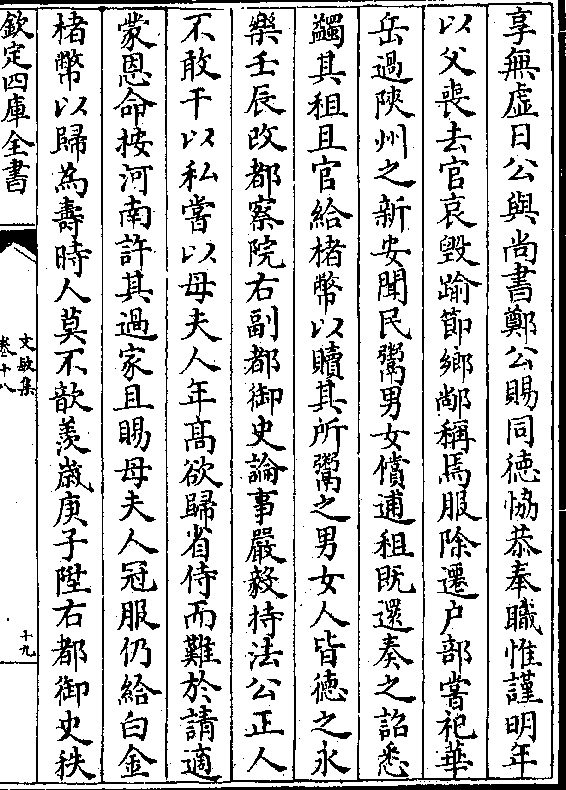 享無虚日公與尚書鄭公賜同徳恊恭奉職惟謹明年
以父喪去官哀毀踰節鄉鄰稱焉服除遷户部嘗祀華
岳過陜州之新安聞民鬻男女償逋租既還奏之詔悉
蠲其租且官給楮幣以贖其所鬻之男女人皆德之永
樂壬辰改都察院右副都御史論事嚴毅持法公正人
不敢干以私嘗以母夫人年髙欲歸省侍而難於請適
蒙恩命按河南許其過家且賜母夫人冠服仍給白金
楮幣以歸為壽時人莫不歆羡嵗庚子陞右都御史秩
欽定四庫全書
文敏集
卷十八
十九